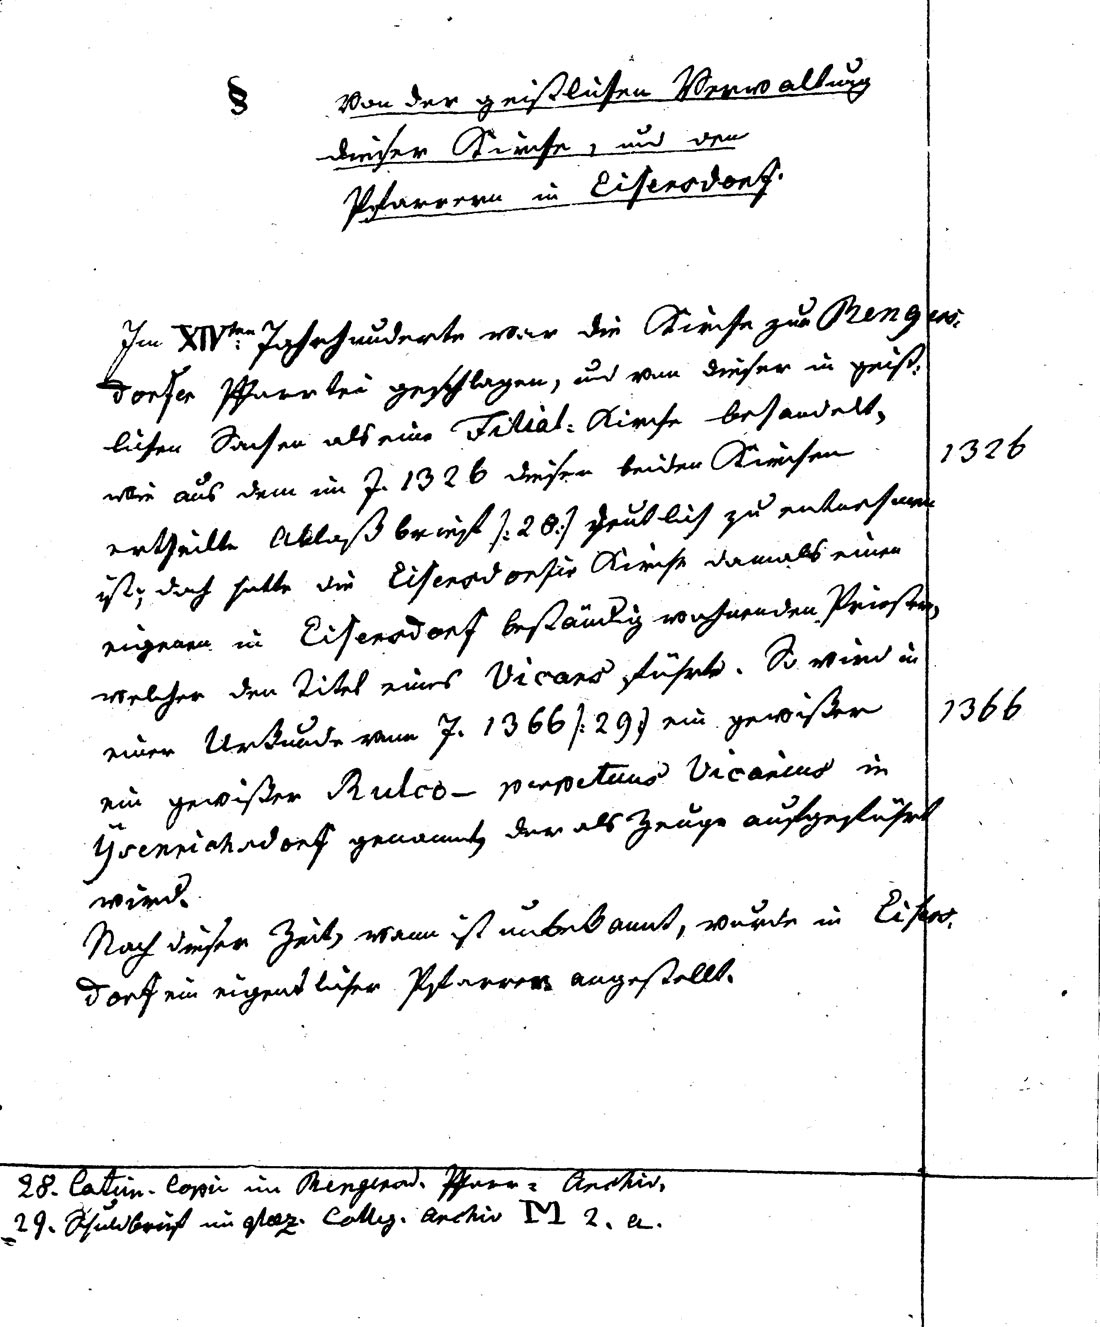 § Von der geistlichen Verwaltung
dieser Kirche, und den
Pfarrern in Eisersdorf.
Im XIVten: Jahrhunderte war die Kirche zur Rengers:
dorfer Pfarrtei geschlagen, und von dieser in geist:
lichen Sachen als eine Filial: Kirche behandelt,
wie aus dem im J. 1326 diesen beiden Kirchen
1326
ertheilte Ablaßbrief /: 28:/ deutlich zu entnehmen
ist; doch hatte die Eisersdorfer Kirche damals einen
eigenen in Eisersdorf beständig wohnenden Priester,
welcher den Titel eines Vicars führte. So wird in
einer Urkunde vom J. 1366 /: 29:/ ein gewißer
1366
ein gewißer Rulco – perpetuus Vicarius in
Ysenrichsdorf genannt, der als Zeuge aufgeführt
wird.
Nach dieser Zeit, wann ist unbekannt, wurde in Eisers:
dorf ein eigentlicher Pfarrer angestellt.
28. Latein. Copie im Rengersd. Pfarr: Archiv.
29. Schuldbrief im glaz. Colleg. Archiv M 2. a.